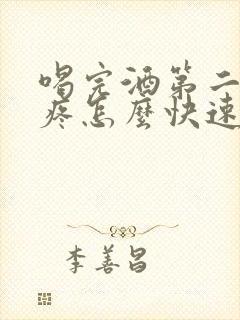 喝完酒第二
疼怎麼快速
李善昌